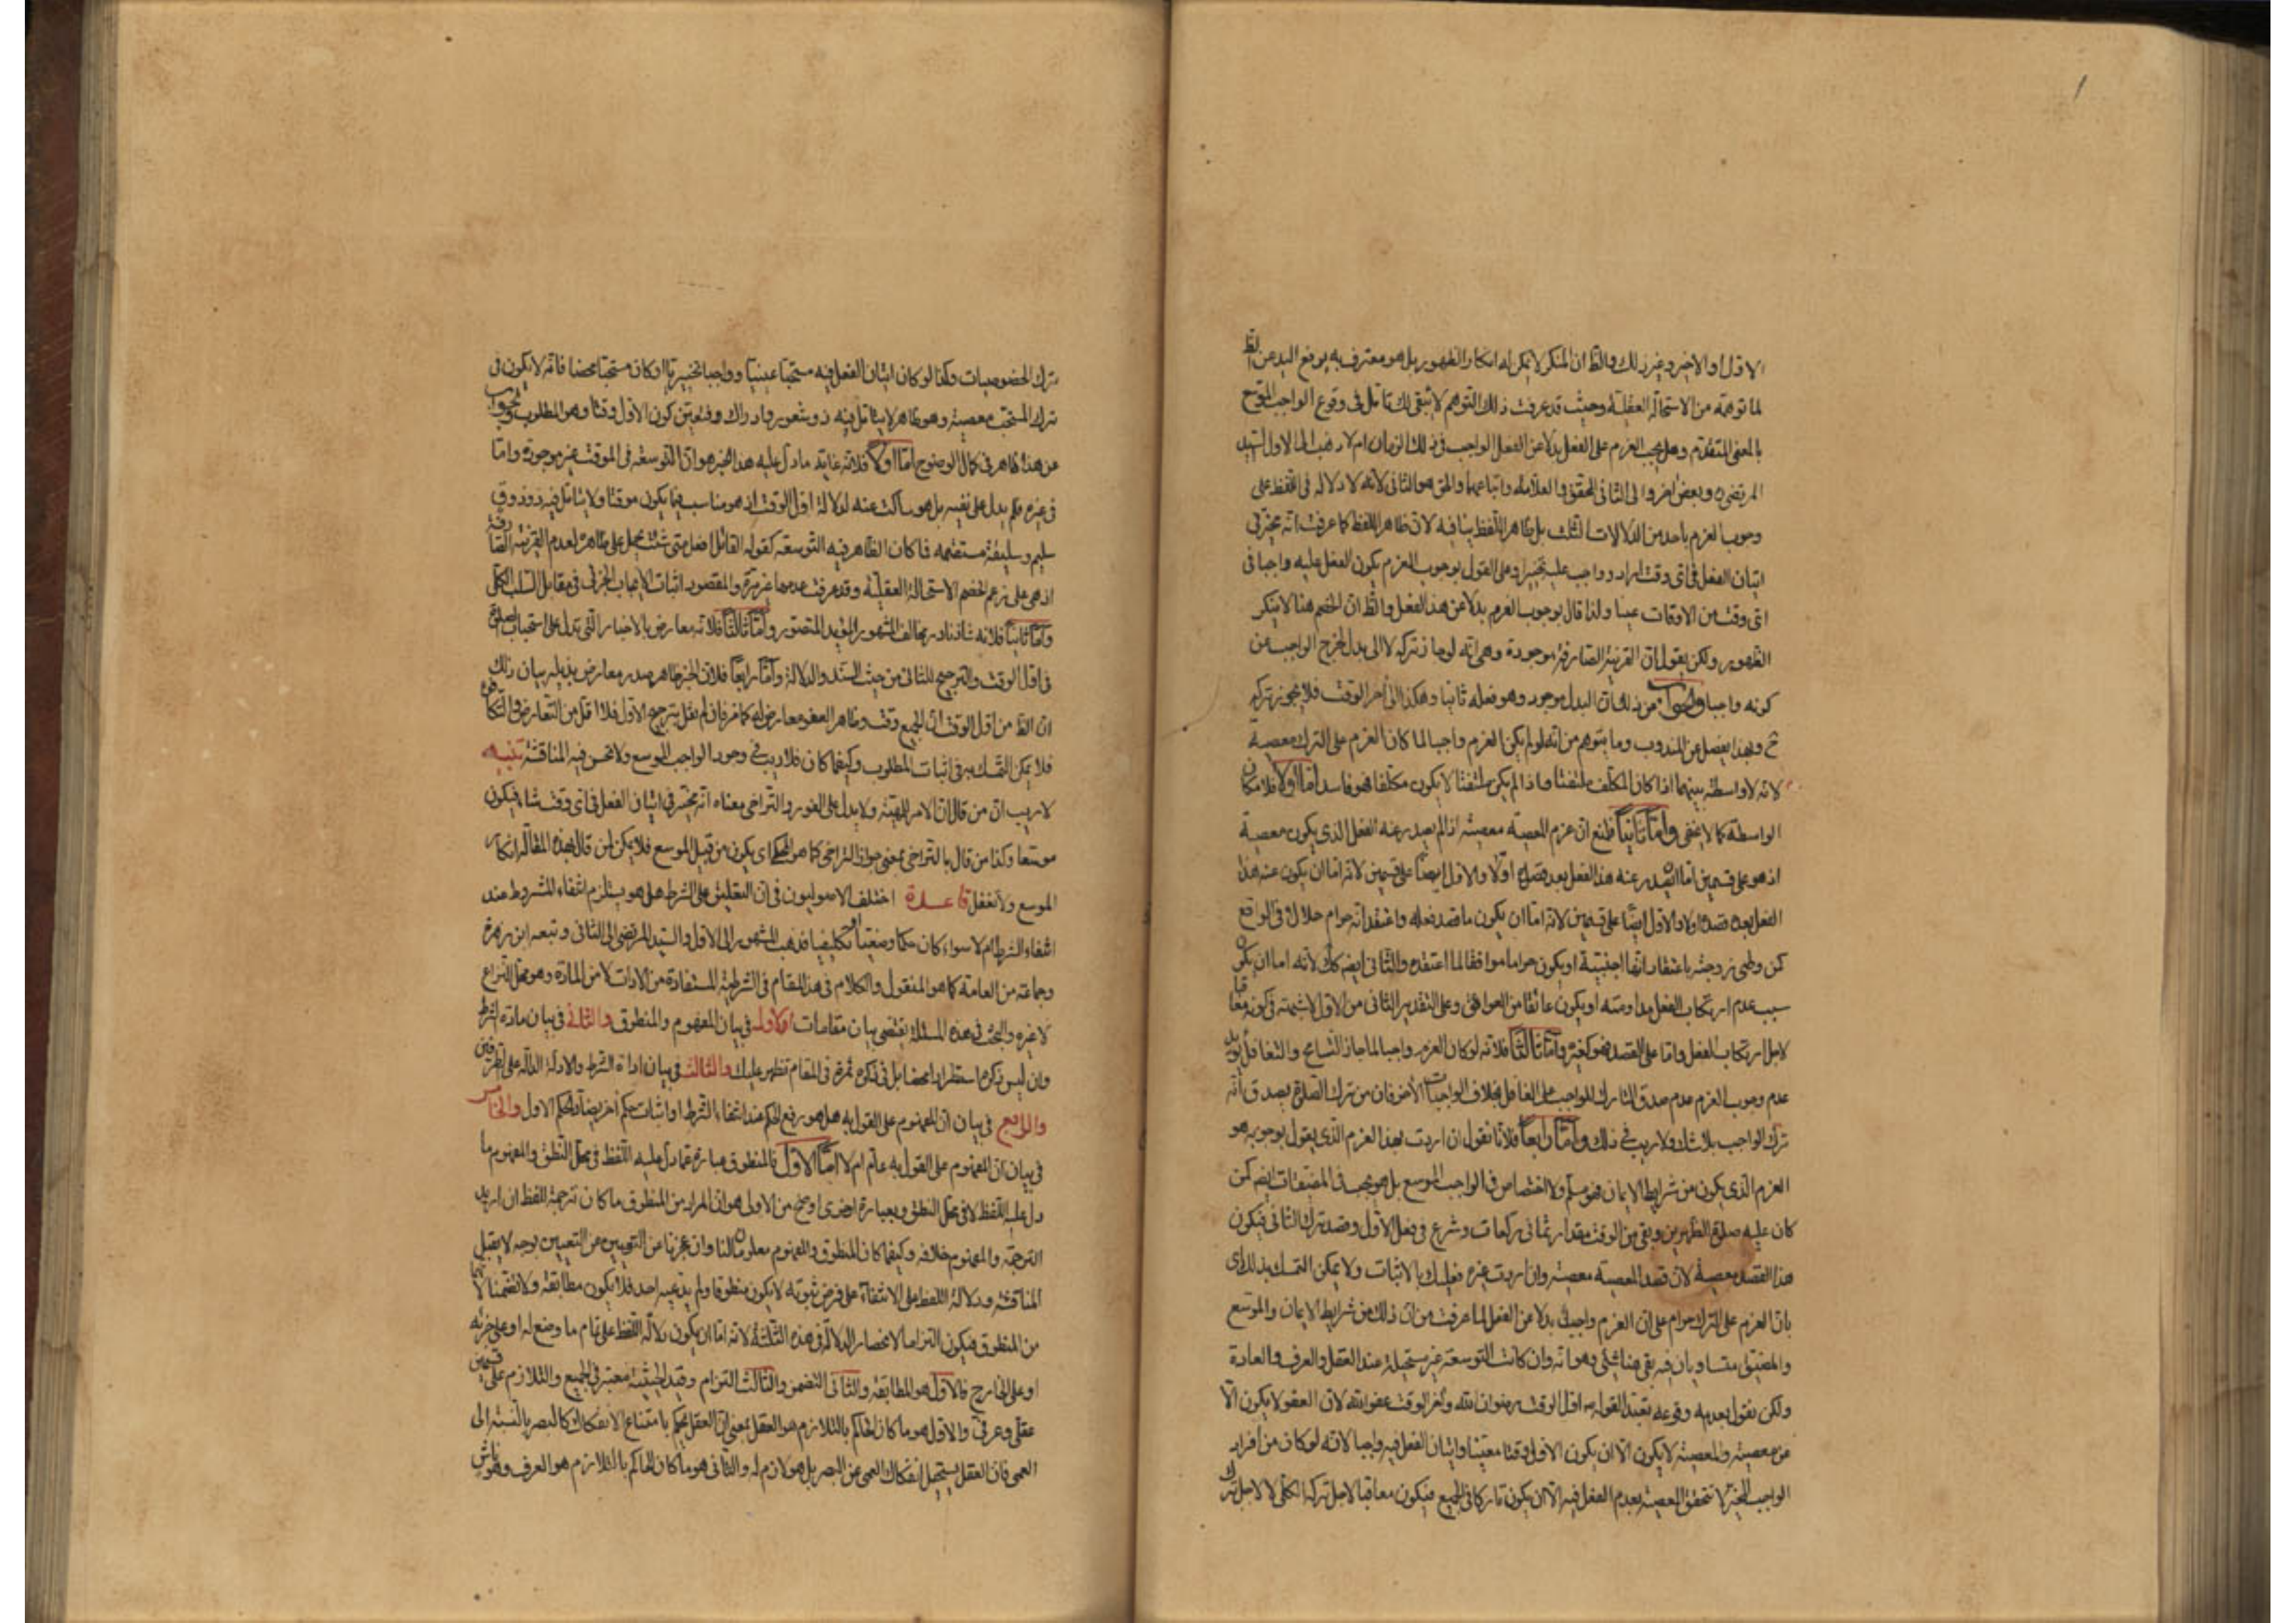 الاول او الاخير وغير ذلك والظ ان المنكر لا يمكن له انكار الظهور بل هو معترف به يرفع اليد عن الظ
لما توهمه من الاستحالة العقلية وحيث قد عرفت ذلك التوهم لا يبقى لك تامل فى وقوع الواجب الموسع
بالمعنى المتقدم وهل يجب العزم على الفعل بدلا عن الفعل الواجب فى ذلك الزمان ام لا ذهب الى الاول السيد
المرتضى ره وبعض اخر والى الثانى المحقق والعلامة واتباعهما والحق هو الثانى لانه لا دلالة فى اللفظ على
وجوب العزم باحد من الدلالات الثلث بل ظاهر اللفظ ينافيه لان ظاهر اللفظ كما عرفت انه مخير فى
اتيان الفعل فى اى وقت اراد وواجب عليه تخييرا وعلى القول بوجوب العزم يكون الفعل عليه واجبا فى
اى وقت من الاوقات عينا ولذا قال بوجوب العزم بدلا عن هذا الفعل والظ ان الخصم هنا لا ينكر
الظهور ولكن يقول ان القرينة الصارفة موجودة وهى انه لو جاز تركه لا الى بدل لخرج الواجب عن
كونه واجبا والجواب عن ذلك ان البدل موجود وهو فعله ثانيا وهكذا الى اخر الوقت فلا يجوز تركه
ح وبهذا يفصل عن المندوب وما يتوهم من انه لو لم يكن العزم واجبا لما كان العزم على الترك معصية
لانه لا واسطة بينهما اذا كان المكلف ملتفتا واذا لم يكن ملتفتا لا يكون مكلفا فهو فاسد اما اولا فلامكان
الواسطة كما لا يخفى واما ثانيا فلمنع ان عزم المعصية معصية اذا لم يصدر عنه الفعل الذى يكون معصية
اذ هو على قسمين اما ان يصدر عنه هذا الفعل بعد قصده اولا والاول ايضا على قسمين لانه اما ان يكون عنه هذا
الفعل بعد قصده اولا والاول ايضا على قسمين لانه اما ان يكون ما قصد فعله واعتقد انه حرام حلال فى الواقع
كمن وطى زوجته باعتقاد انها اجنبية او يكون حراما موافقا لما اعتقده والثانى ايضا كك لانه اما ان يكون
سبب عدم ارتكاب الفعل مداومته او يكون عائقا من العوائق وعلى التقدير الثانى من الاول لا شبهة فى كونه معاقبا
لاجل ارتكاب الفعل واما على القصد فهو كغيره واما ثالثا فلانه لو كان العزم واجبا لما جاز التسامح والتغافل بدليل
عدم وجوب العزم عدم صدق التارك للواجب على الغافل بخلاف الواجبات الاخر فان من ترك الصلوة يصدق انه
ترك الواجب بلا شك ولا ريب فى ذلك واما رابعا فلانا نقول ان اردت بهذا العزم الذى يقول بوجوبه هو
العزم الذى يكون من شرايط الايمان فهو مسلم ولا اختصاص فى الواجب الموسع بل هو يجب فى المضيقات ايضا كمن
كان عليه صلوة الظهرين وبقى من الوقت مقدار ثمانى ركعات وشرع فى فعل الاول وقصد ترك الثانى فيكون
هذا القصد معصية لان قصد المعصية معصية وان اردت غيره فعليك بالاثبات ولا يمكن التمسك بذلك اى
بان العزم على الترك حرام على ان العزم واجب بدلا عن الفعل لما عرفت من ان ذلك من شرايط الايمان والموسع
والمضيق متساويان فيه بقى هنا شئ وهو انه وان كانت التوسعة غير مستحيلة عند العقل والعرف والعادة
ولكن نقول بعدمه وقوعه بقيد القوله اول الوقت رضوان الله واخر الوقت عفو الله لان العفو لا يكون الا
من معصية والمعصية لا يكون الا ان يكون الاول وقتا معينا واتيان الفعل فيه واجبا لانه لو كان من افراد
الواجب المخير لا تتحقق المعصية بعدم الفعل فيه الا ان يكون تاركا فى الجميع فيكون معاقبا لاجل تركه الكلى لا لاجل ترك
ترك الخصوصيات وكذا لو كان اتيان الفعل فيه مستحبا عينيا وواجبا تخييريا او كان مستحبا محضا فانه لا يكون فى
ترك المستحب معصية وهو ظاهر لا يتامل فيه ذو شعور وادراك وفتعين كون الاول وقتا وهو المطلوب والجواب
عن هذا ظاهر فى كمال الوضوح اما اولا فلانه غاية ما دل عليه هذا الخبر هو ان التوسعة فى الموقت غير موجودة واما
فى غيره فلم يدل على نفيه بل هو ساكت عنه لدلالة اول الوقت اذ هو مناسب فيما يكون موقتا ولا يتامل فيه ذو ذوق
سليم وسليقة مستقيمة فما كان الظاهر فيه التوسعة كقوله القائل افعل متى شئت يحمل على ظاهره لعدم القرينة الصارفة
اذ هى على زعم الخصم الاستحالة العقلية وقد عرفت عدمها غير مرة والمقصود اثبات الايجاب الجزئى فى مقابل السلب الكلى
واما ثانيا فلانه شاذ نادر مخالف المشهور المؤيد المتصور واما ثالثا فلانه معارض بالاخبار التى تدل على استحباب الصلوة
فى اول الوقت والترجيح للثانى من حيث السند والدلالة واما رابعا فلان الخبر ظاهر صدره معارض بذيله بيان ذلك
ان الظ من اول الوقت ان الجميع وقت وظاهر العفو معارض له كما مر فان لم نقل بترجيح الاول فلا اقل من التعارض والتكافؤ
فلا يمكن التمسك به فى اثبات المطلوب وكيفما كان فلا ريب فى وجود الواجب الموسع ولا تحسن فيه المناقشة تنبيه
لا ريب ان من قال ان الامر للمهية ولا يدل على الفور والتراخى معناه انه مخير فى اتيان الفعل فى اى وقت شاء فيكون
موسعا وكذا من قال بالتراخى بمعنى جواز التراخى كما هو المحكى اى يكون من قبيل الموسع فلا يمكن لمن قال بهذه المقالة انكار
الموسع ولا تغفل قاعدة اختلف الاصوليون فى ان التعليق على الشرط هل هو يستلزم انتفاء المشروط عند
انتفاء الشرط ام لا سواء كان حكما وضعيا او تكليفيا فذهب المشهور الى الاول والسيد المرتضى الى الثانى وتبعه ابن زهرة
وجماعة من العامة كما هو المنقول والكلام فى هذا المقام فى الشرطية المستفادة من الادات لا من المادة وهو محل النزاع
لا غيره والبحث فى هذه المسئلة يقتضى بيان مقامات الاول فى بيان المفهوم والمنطوق والثانى فى بيان مادة الشرط
وان ليس ذكره استطرادا محضا بل فى ذكره ثمرة فى المقام تظهر عليك والثالث فى بيان اداة الشرط والادلة الدالة على الطرفين
والرابع فى بيان ان المفهوم على القول به هل هو رفع الحكم عند انتفاء الشرط او اثبات حكم اخر يضاد الحكم الاول والخامس
فى بيان ان المفهوم على القول به عام ام لا اما الاول فالمنطوق عبارة عما دل عليه اللفظ فى محل النطق والمفهوم ما
دل عليه اللفظ لا فى محل النطق وبعبارة اخرى اوضح من الاولى هو ان المراد من المنطوق ما كان ترجمة اللفظ ان اريد
الترجمة والمفهوم خلافه وكيفما كان المنطوق والمفهوم معلومان لنا وان عجزنا عن التعيين عن التعيين بوجه لا يقبل
المناقشة ودلالة اللفظ على الانتفاء على فرض ثبوته لا يكون منطوقا ولم يدعيه احد فلا يكون مطابقة ولا تضمنا لانهما
من المنطوق فيكون التزاما لانحصار الدلالة فى هذه الثلثة لانه اما ان يكون دلالة اللفظ على تمام ما وضع له او على جزئه
او على الخارج فالاول هو المطابقة والثانى التضمن والثالث التزام وقيد الحيثية معتبر فى الجميع والتلازم على قسمين
عقلى وعرفى والاول هو ما كان الحاكم بالتلازم هو العقل بمعنى ان العقل يحكم بامتناع الانفكاك كالبصر بالنسبة الى
العمى فان العقل يستحيل انفكاك العمى عن البصر بل هو لازم له والثانى هو ما كان الحاكم بالتلازم هو العرف وهو ناش